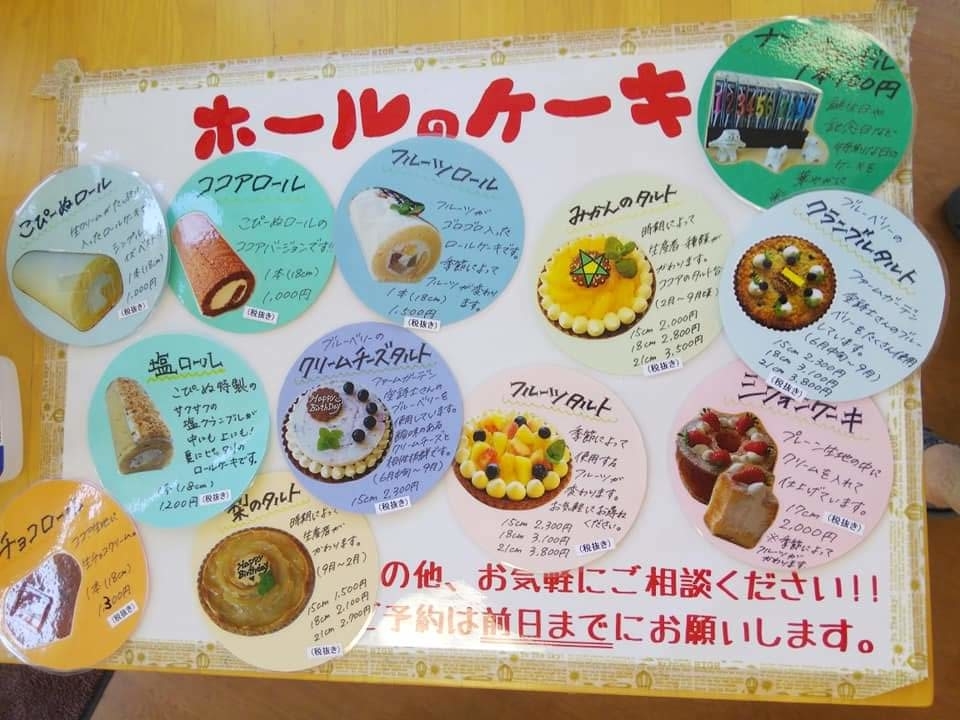 ホールのケーキ
こぴーぬロール
1本(18cm)
1,000円
(税抜き)
ココアロール
こぴーぬロールの
ココアバージョンです!!
1本(18cm)
1,000円
(税抜き)
フルーツロール
フルーツが
ゴロゴロ入った
ロールケーキです。
季節によって
フルーツが変わります。
1本(18cm)
1,500円
(税抜き)
みかんのタルト
時期によって
生産者・種類が
かわります。
ココアのタルト台
(2月~9月頃)
15cm 2,000円
18cm 2,800円
21cm 3,500円
(税抜き)
ブルーベリーの
クランブルタルト
ファームガーデン
(6月中旬~9月)
15cm 2,300円
18cm 3,100円
21cm 3,800円
(税抜き)
塩ロール
こぴーぬ特製の
サクサクの
塩クランブルが
中にも上にも!
夏にピッタリの
ロールケーキです。
1本(18cm)
1200円
(税抜き)
ブルーベリーの
クリームチーズタルト
Happy
BirthDay
ファームガーデン
ブルーベリーを
使用しています。
酸味のある
クリームチーズと
相性抜群です。
(6月中旬~9月)
15cm 2,300円
(税抜き)
フルーツタルト
季節によって
使用する
フルーツが
変わります。
お気軽にお尋ね
ください。
15cm 2,300円
18cm 3,100円
21cm 3,800円
(税抜き)
シフォンケーキ
プレーン生地の中に
クリームを入れて
仕上げています。
17cm
2,000円
(税抜き)
※季節によって
フルーツがかわります。
チョコロール
生チョコクリーム。
1本(18cm)
1300円
(税抜き)
梨のタルト
Happy
Birthday
時期によって
生産者が
かわります。
(9月~2月)
15cm 1,500円
18cm 2,100円
21cm 2,700円
(税抜き)
の他、お気軽にご相談ください!!
ご予約は前日までにお願いします。